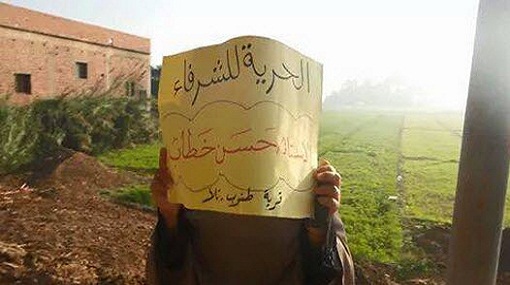 الحرية للشرفاء
الأستاذ/حسن خطاب
قرية طنوب . تلا